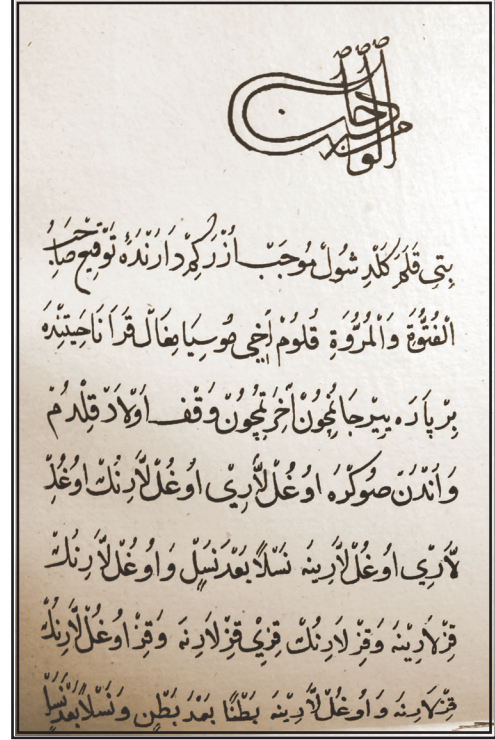 بِتِي قَلَمَ كَلْدِ شُولْ مُوجَبْ اُزْرَكِمْ دَارَنْدَهٔ تَوْقِيعْ صَاحِبُ
الْفُتُوَّةِ وَالْمُرُوَّةِ قُلُومْ اَخِي مُوسِيَا مِغَالْ قَرَا نَاحِيَتِنْدَه
بِرْ پَارَه يِيرْ جَانُمْچُونْ اٰخِرَتُمْچُونْ وَقْفِ اَوْلَادْ قِلْدُمْ
وَ اَنْدَنْ صُوكْرَه اوُغُلْلَارِی اوُغُلْلَارِنُكْ اوُغُلْ
لَارِی اوُغُلْلَارِينَه نَسْلًا بَعْدَ نَسْلٍ وَ اوُغُلْلَارِنُكْ
قِزْلَارِينَه وَ قِزْلَارِنُكْ قِزِی قِزْلَارِنَه وَ قِزْ اوُغُلْلَارِنُكْ
قِزْلَارِنَه وَ اوُغُلْلَارِينَه بَطْنًا بَعْدَ بَطْنٍ وَ نَسْلًا بَعْدَ نَسْلٍ